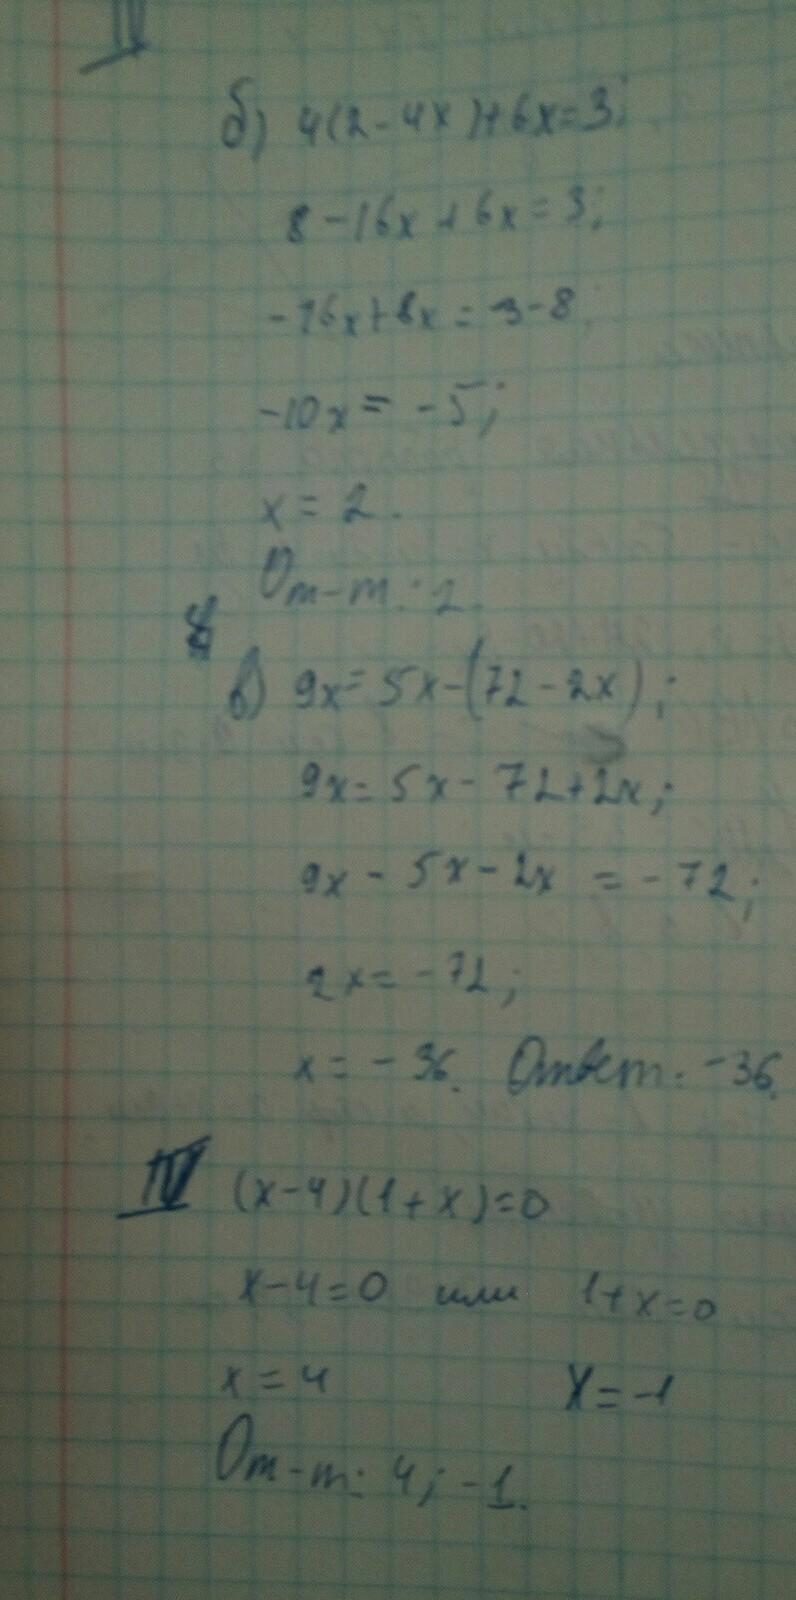 IV
б) 4(2-4x)+6x=3;
8-16x+6x=3;
-16x+6x=3-8;
-10x=-5;
x=2.
От-т: 2
в) 9x=5x-(72-2x);
9x=5x-72+2x;
9x-5x-2x=-72;
2x=-72;
x=-36. Ответ: -36.
IV (x-4)(1+x)=0
x-4=0 или 1+x=0
x=4 x=-1
От-т: 4; -1.